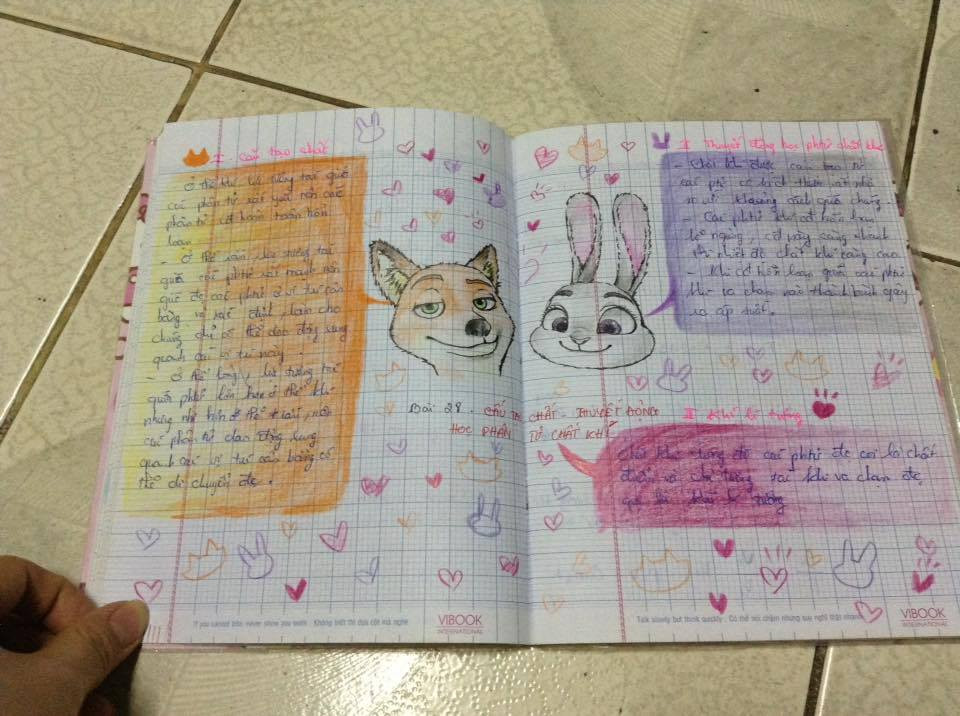 I. Cấu tạo chất
Ở thể khí, lực tương tác giữa
các phân tử rất yếu nên các
phân tử cđ hoàn toàn hỗn
loạn
- Ở thể rắn, lực tương tác
giữa các phtử rất mạnh nên
giữ đc các phtử ở vị trí cân
bằng và xác định, làm cho
chúng chỉ có thể dao động xung
quanh các vị trí này.
- Ở thể lỏng, lực tương tác
giữa phtử lớn hơn ở thể khí
nhưng nhỏ hơn ở thể rắn, nên
các phân tử dao động xung
quanh các vị trí cân bằng có
thể di chuyển đc.
Bài 28. CẤU TẠO CHẤT - THUYẾT ĐỘNG
HỌC PHÂN TỬ CHẤT KHÍ
If you cannot bite, never show you teeth - Không biết thì dựa cột mà nghe
VIBOOK
INTERNATIONAL
I Thuyết động học phtử chất khí
- Chất khí được cấu tạo từ
các phtử có kích thước rất nhỏ
so với khoảng cách giữa chúng.
- Các phtử khí cđ hỗn loạn
ko ngừng, cđ này càng nhanh
thì nhiệt độ chất khí càng cao
- Khi cđ hỗn loạn giữa các phtử
khí va chạm vào thành bình gây
ra áp suất.
II Khí lí tưởng
Chất khí trong đó các phtử đc coi là chất
điểm và chỉ tương tác khi va chạm đc
gọi là khí lí tưởng
Talk slowly but think quickly - Có thể nói chậm nhưng suy nghĩ thật nhanh
VIBOOK
INTERNATIONAL